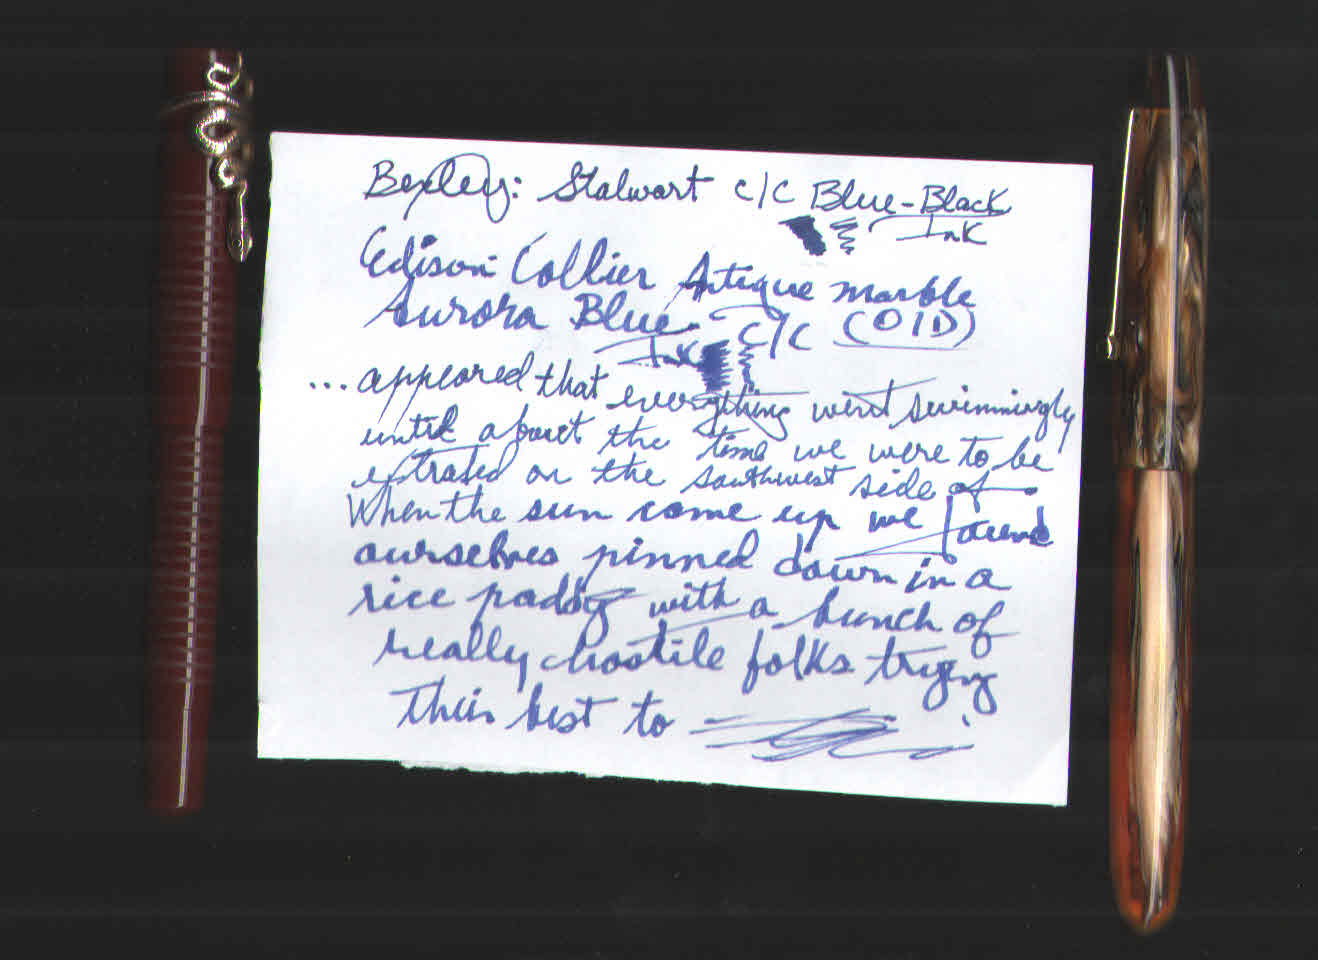 Bexley: Stalwart c/c Blue-Black
Ink
Edison Collier Antique marble
Aurora Blue c/c (OID)
Ink
...appeared that everything went swimmingly
until about the time we were to be
extrated on the southwest side of —
When the sun come up we found
ourselves pinned down in a
rice paddy with a bunch of
really hostile folks trying
their best to